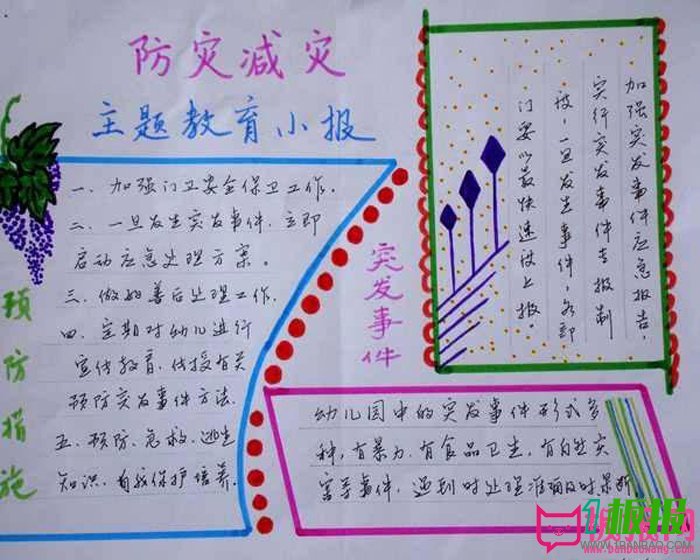 防灾减灾
主题教育小报
预防措施
一、加强门卫安全保卫工作。
二、一旦发生突发事件，立即
启动应急处理方案。
三、做好善后处理工作。
四、定期对幼儿进行
宣传教育，传授有关
预防突发事件方法。
五、预防、急救、逃生
知识，自我保护培养。
突发事件
加强突发事件应急报告，
实行突发事件专报制
度，一旦发生事件，各部
门要以最快速度上报。
幼儿园中的突发事件形式多
种，有暴力、有食品卫生、有自然灾
害等事件，遇到时处理准确及时果断
www.banbaowang.com